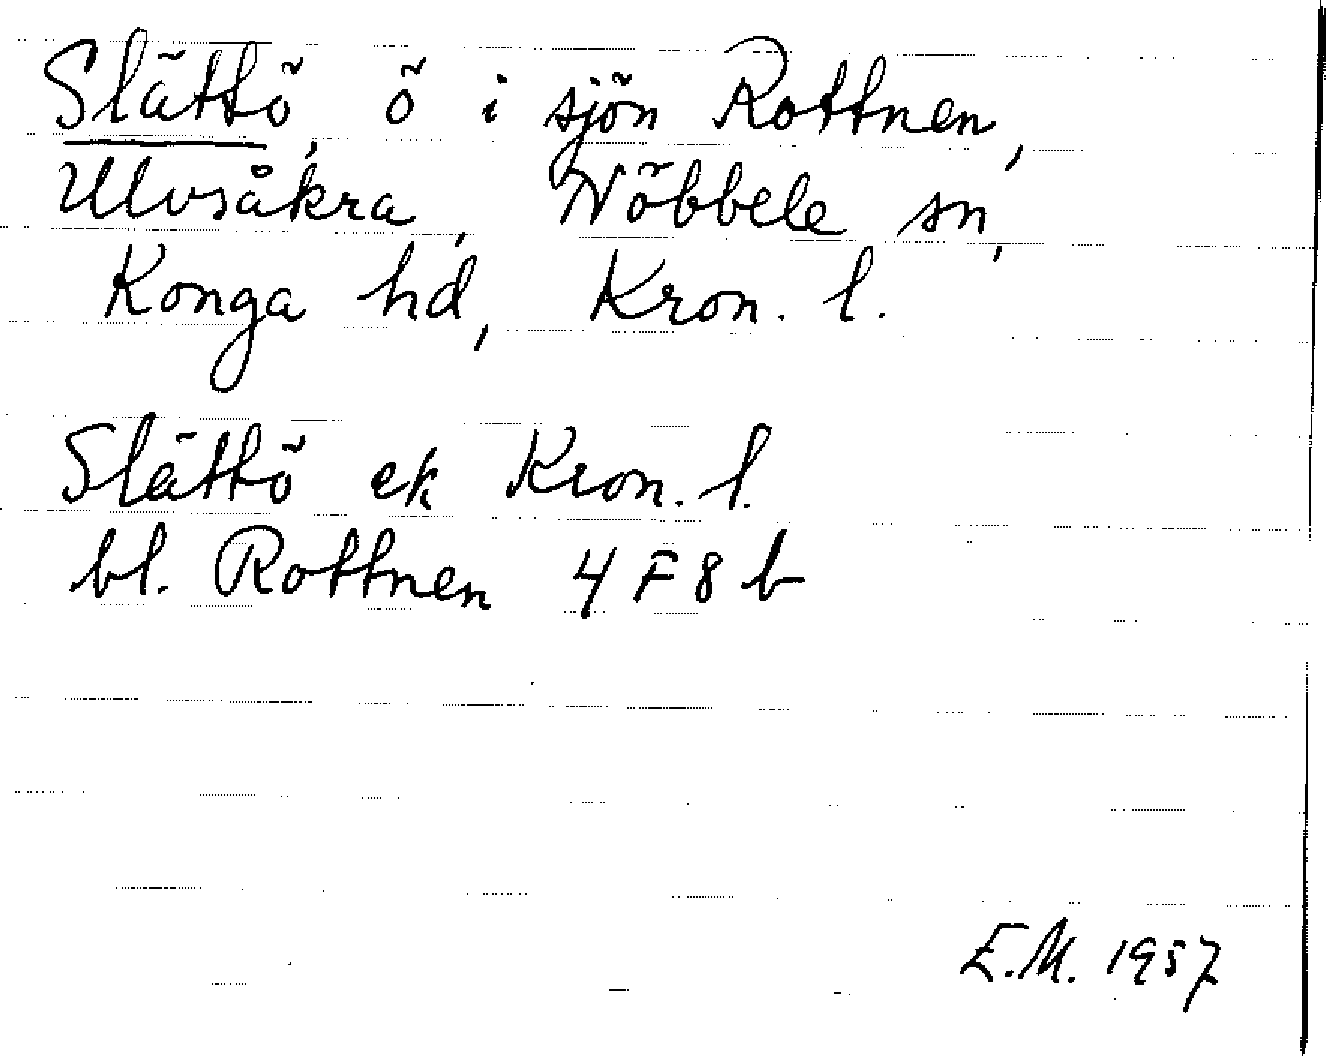 Slättö, ö i sjön Rottnen,
Ulvsåkra, Nöbbele sn,
Konga hd, Kron. l.
Slättö ek Kron. l.
bl. Rottnen 4F8b
E.M. 1957